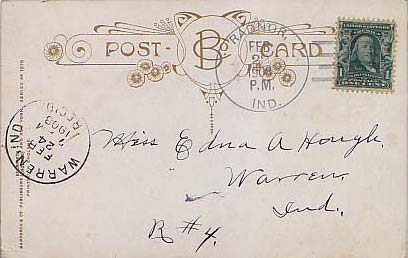 POST CARD
RADNOR,
FEB
1908
P.M.
IND.
1
WARREN IND
FEB
24
1908
REC'D
Miss Edna A Hough.
Warren,
Ind.
R#4.